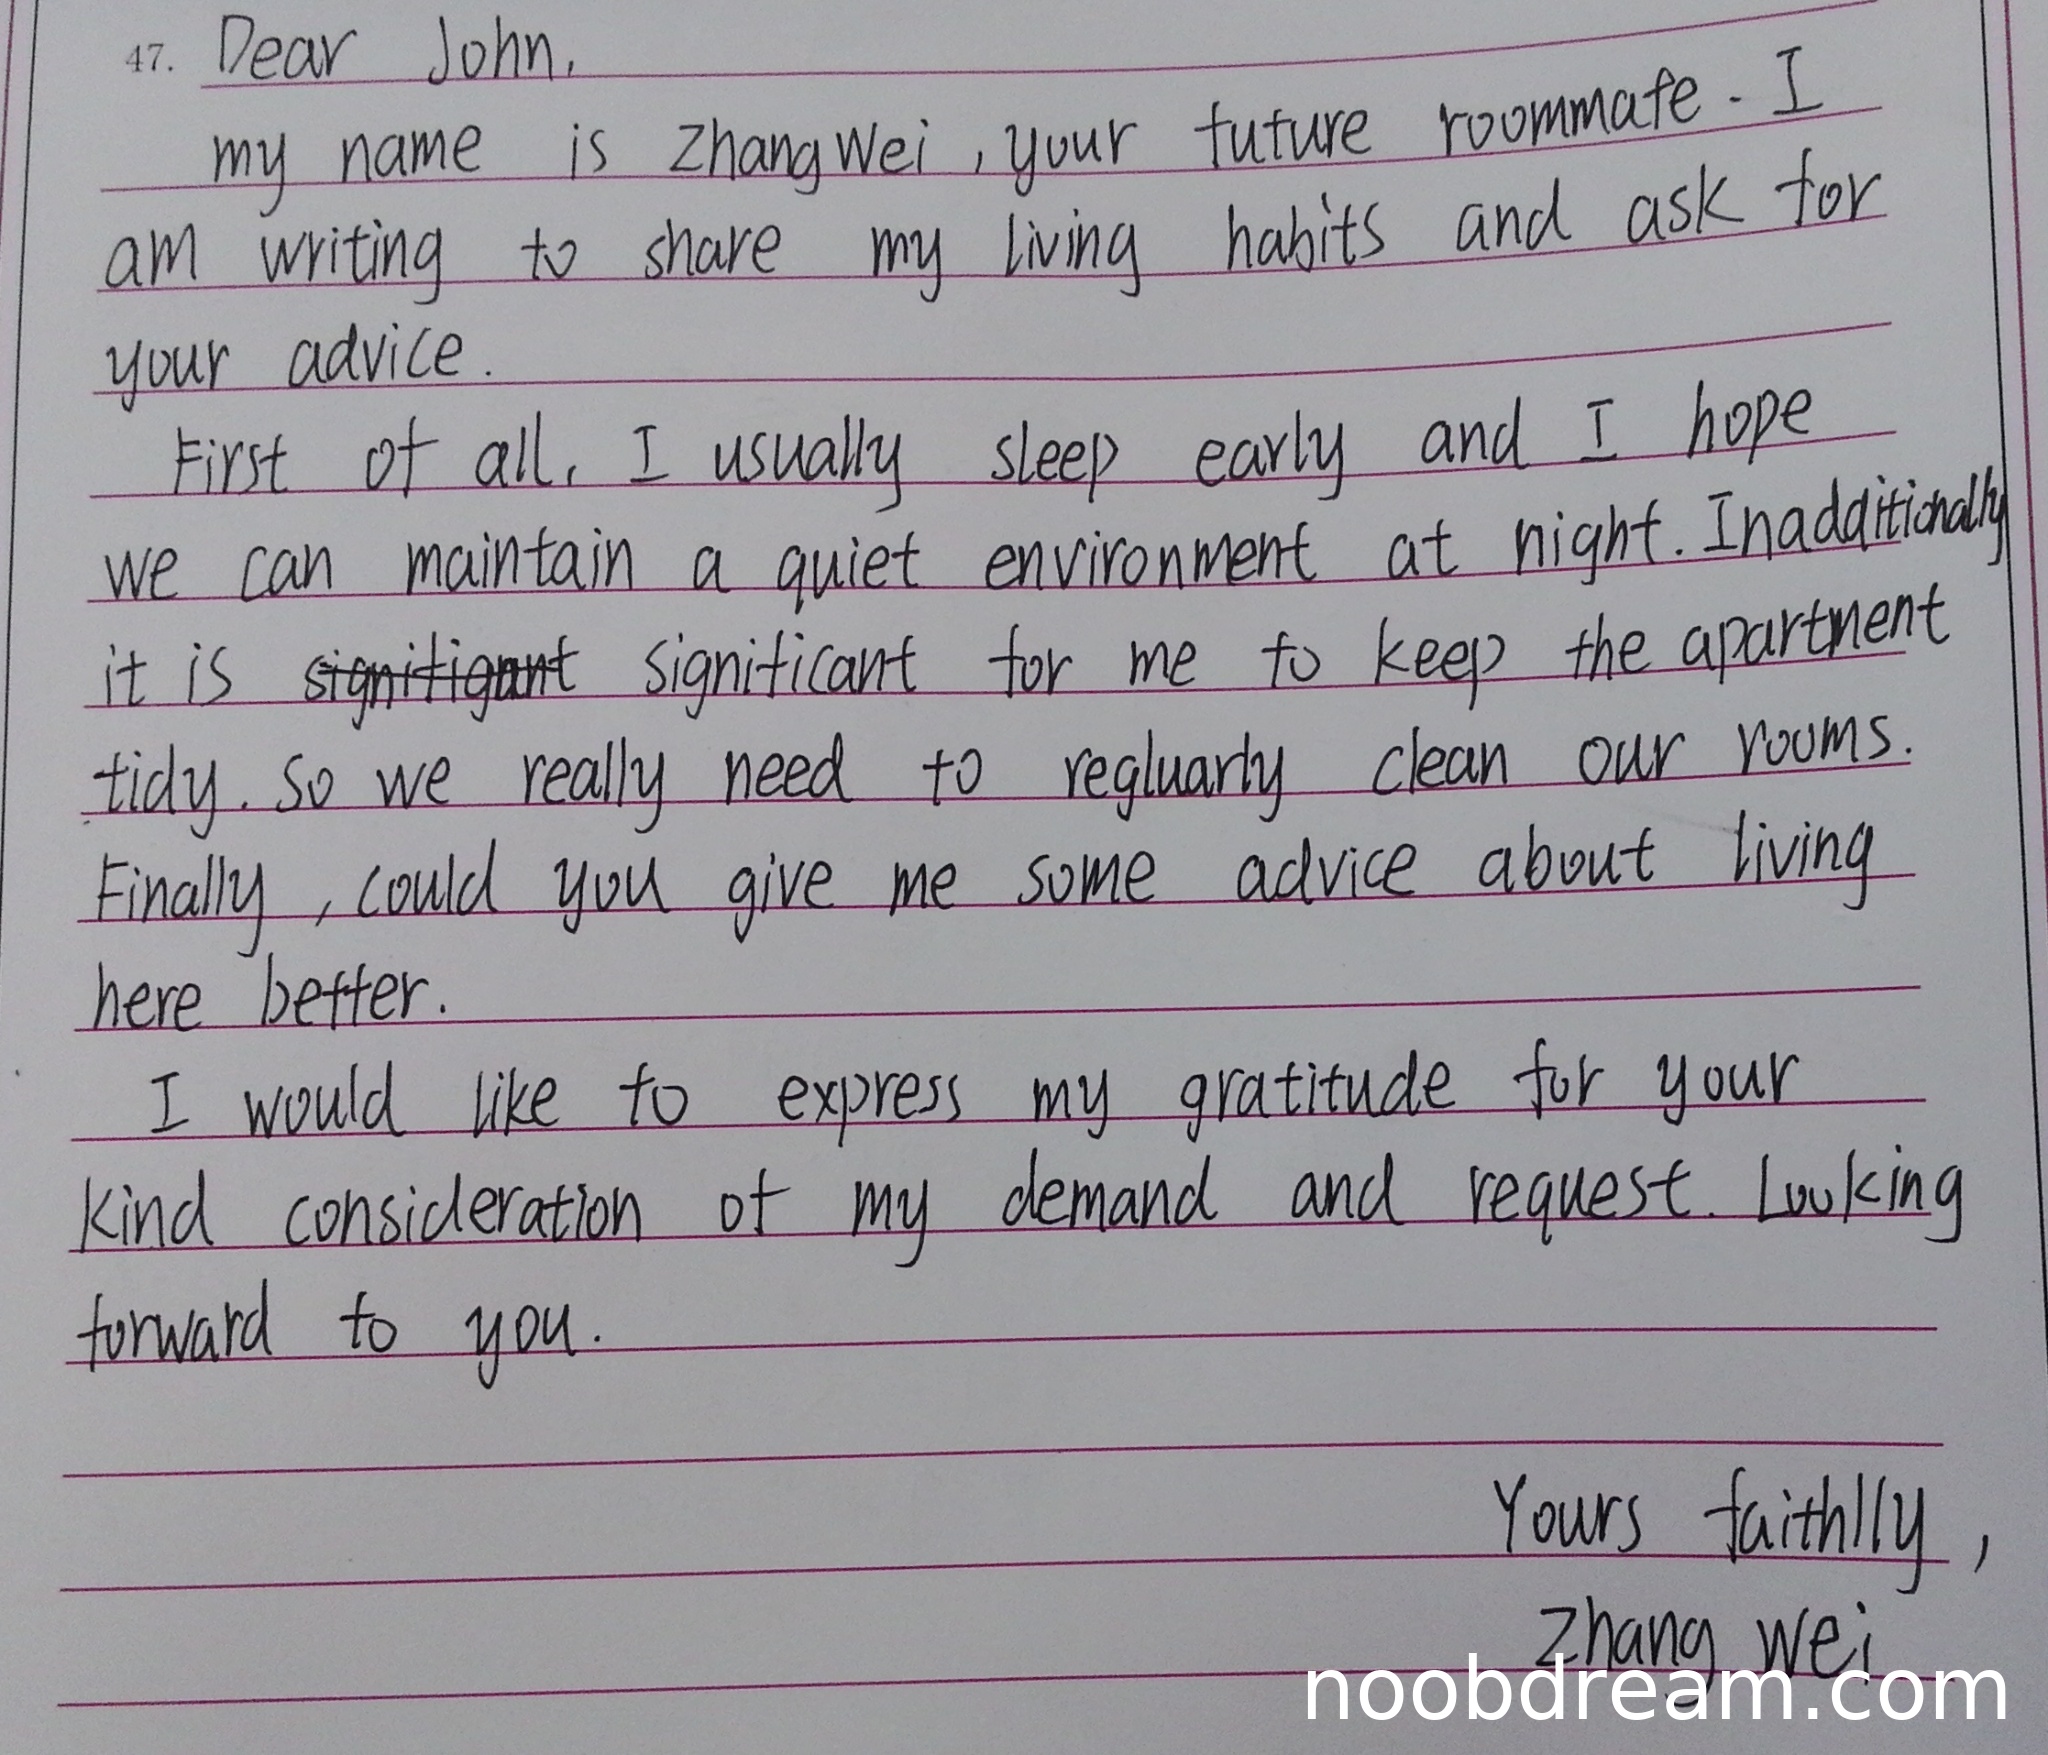 47. Dear John,
my name is Zhang Wei, your future roommate. I
am writing to share my living habits and ask for
your advice.
First of all, I usually sleep early and I hope
we can maintain a quiet environment at night. Inadditionally
it is signitigant significant for me to keep the apartment
tidy. So we really need to regluarly clean our rooms.
Finally, could you give me some advice about living
here better.
I would like to express my gratitude for your
kind consideration of my demand and request. Looking
forward to you.
Yours faithlly,
Zhang Wei
noobdream.com